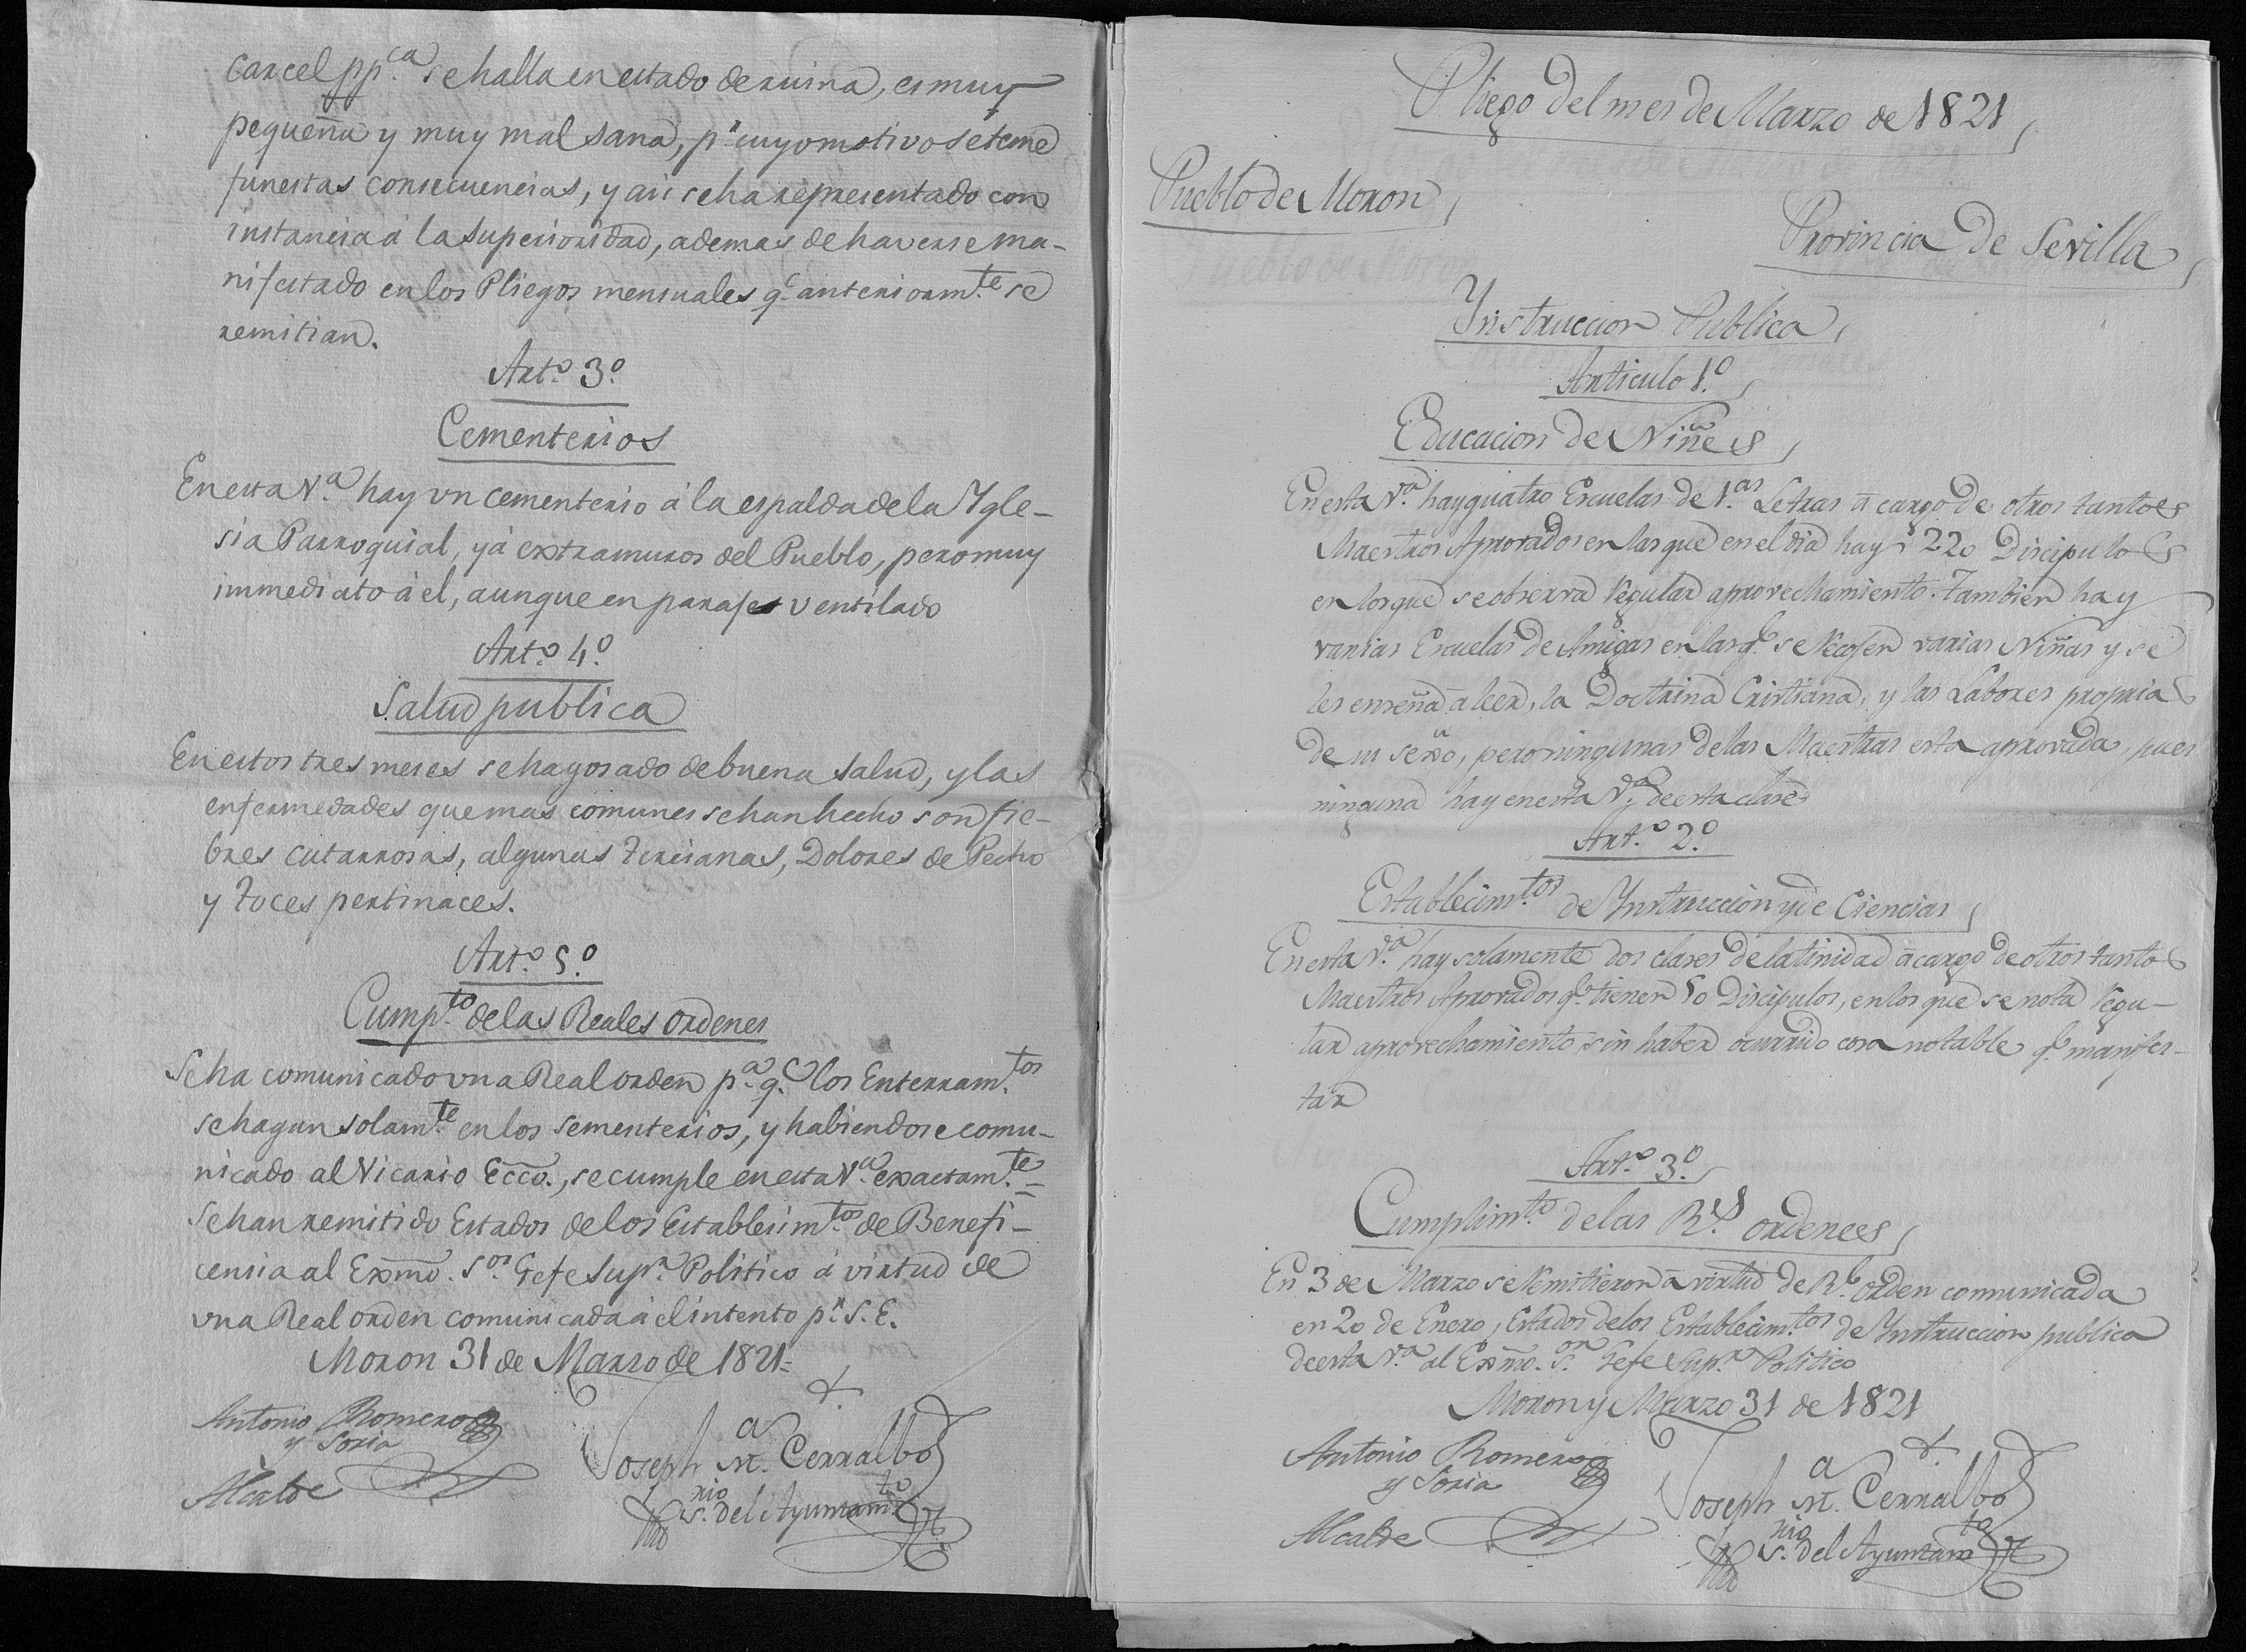 Carcel pp.ca se halla en estado de ruina, es muy
pequeña y muy mal sana, p.r cuyo motivo se teme
funestas consecuencias, y asi se ha representado con
instancia á la Superioridad, ademas de haverse ma-
nifestado en los Pliegos mensuales q.e anteriorm.te se
remitian.
Art.o 3.o
Cementerios
En esta V.a hay un cementerio á la espalda de la Ygle-
sia Parroquial, y á extramuros del Pueblo, pero muy
immediato á el, aunque en paraje ventilado
Art.o 4.o
Salud publica
En estos tres meses se ha gosado de buena salud, y las
enfermedades que mas comunes se han hecho son fie-
bres catarrosas, algunas Tercianas, Dolores de Pecho
y Toces pertinaces.
Art.o 5.o
Cump.to de las Reales Ordenes
Se ha comunicado una Real orden p.a q.e los Enterram.tos
se hagan solam.te en los sementerios, y habiendose comu-
nicado al Vicario Ecco., se cumple en esta V.a exactam.te =
Se han remitido Estados de los Establesim.tos de Benefi-
censia al Exmo. S.or Gefe Sup.r Politico á virtud de
una Real orden comunicada á el intento p.r S.E.
Moron 31 de Marzo de 1821=
Antonio Romero
y Soria
Alcalde
Joseph M.a Cerralbo
S.rio del Ayuntam.to
Pliego del mes de Marzo de 1821
Pueblo de Moron
Provincia de Sevilla
Ynstruccion Publica
Articulo 1.o
Educacion de Niñes
En esta V.a hay quatro Escuelas de 1.as Letras á cargo de otros tantos
Maestros Aprovados en las que en el dia hay 220 Discipulos
en los que se observa regular aprovechamiento. Tambien hay
varias Escuelas de Amigas en las q.e se recojen varias Niñas y se
les enseña á leer, la Doctrina Cristiana, y las Labores propria
de su sexso, pero ningunas de las Maestras esta aprovada, pues
ninguna hay en esta V.a de esta clase
Art.o 2.o
Establecim.tos de Ynstruccion y de Ciencias
En esta V.a hay solamente dos clases de latinidad á cargo de otros tantos
Maestros Aprovados q.e tienen 50 Discipulos, en los que se nota regu-
lar aprovechamiento sin haber ocurrido cosa notable q.e manifes-
tar
Art.o 3.o
Cumplim.to de las R.s ordenes
En 3 de Marzo se remitieron á virtud de R.l orden comunicada
en 20 de Enero, Estados de los Establecim.tos de Ynstruccion publica
de esta V.a al Exmo. S.or Gefe Sup.r Politico
Moron y Marzo 31 de 1821
Antonio Romero
y Soria
Alcalde
Joseph M.a Cerralbo
S.rio del Ayuntam.to